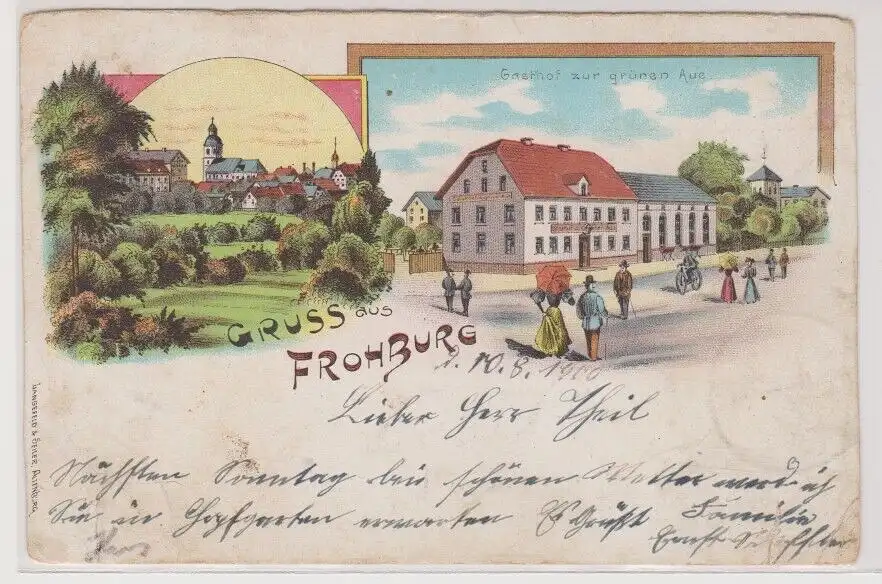 Gasthof zur grünen Aue
GRUSS aus
FROHBURG
d. 10.8.1900
Lieber Herr Theil
Nächsten Sonntag bei schönen Wetter werd ich
Sie in Hopfgarten erwarten Es Grüßt Familie
Ernst
LANGEFELD & SEILER, ALTENBURG.